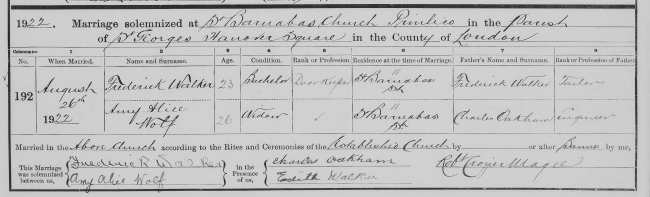 1922. Marriage solemnized at St Barnabas Church Pimlico in the Parish
of St Georges Hanover Square in the County of London
Columns:— 1 2 3 4 5 6 7 8
No. When Married. Name and Surname. Age. Condition. Rank or Profession. Residence at the time of Marriage. Father's Name and Surname. Rank or Profession of Father.
192 August 26th 1922 Frederick Walker 23 Bachelor Door Keeper 11 St Barnabas St. Frederick Walker Tailor
Amy Alice Wolf 26 Widow 11 St Barnabas St. Charles Oakham Engineer
Married in the Above Church according to the Rites and Ceremonies of the Established Church by or after Banns by me,
This Marriage was solemnized between us, Frederick Walker In the Presence of us, Charles Oakham Robt Crozier Magee
Amy Alice Wolf Edith Walker